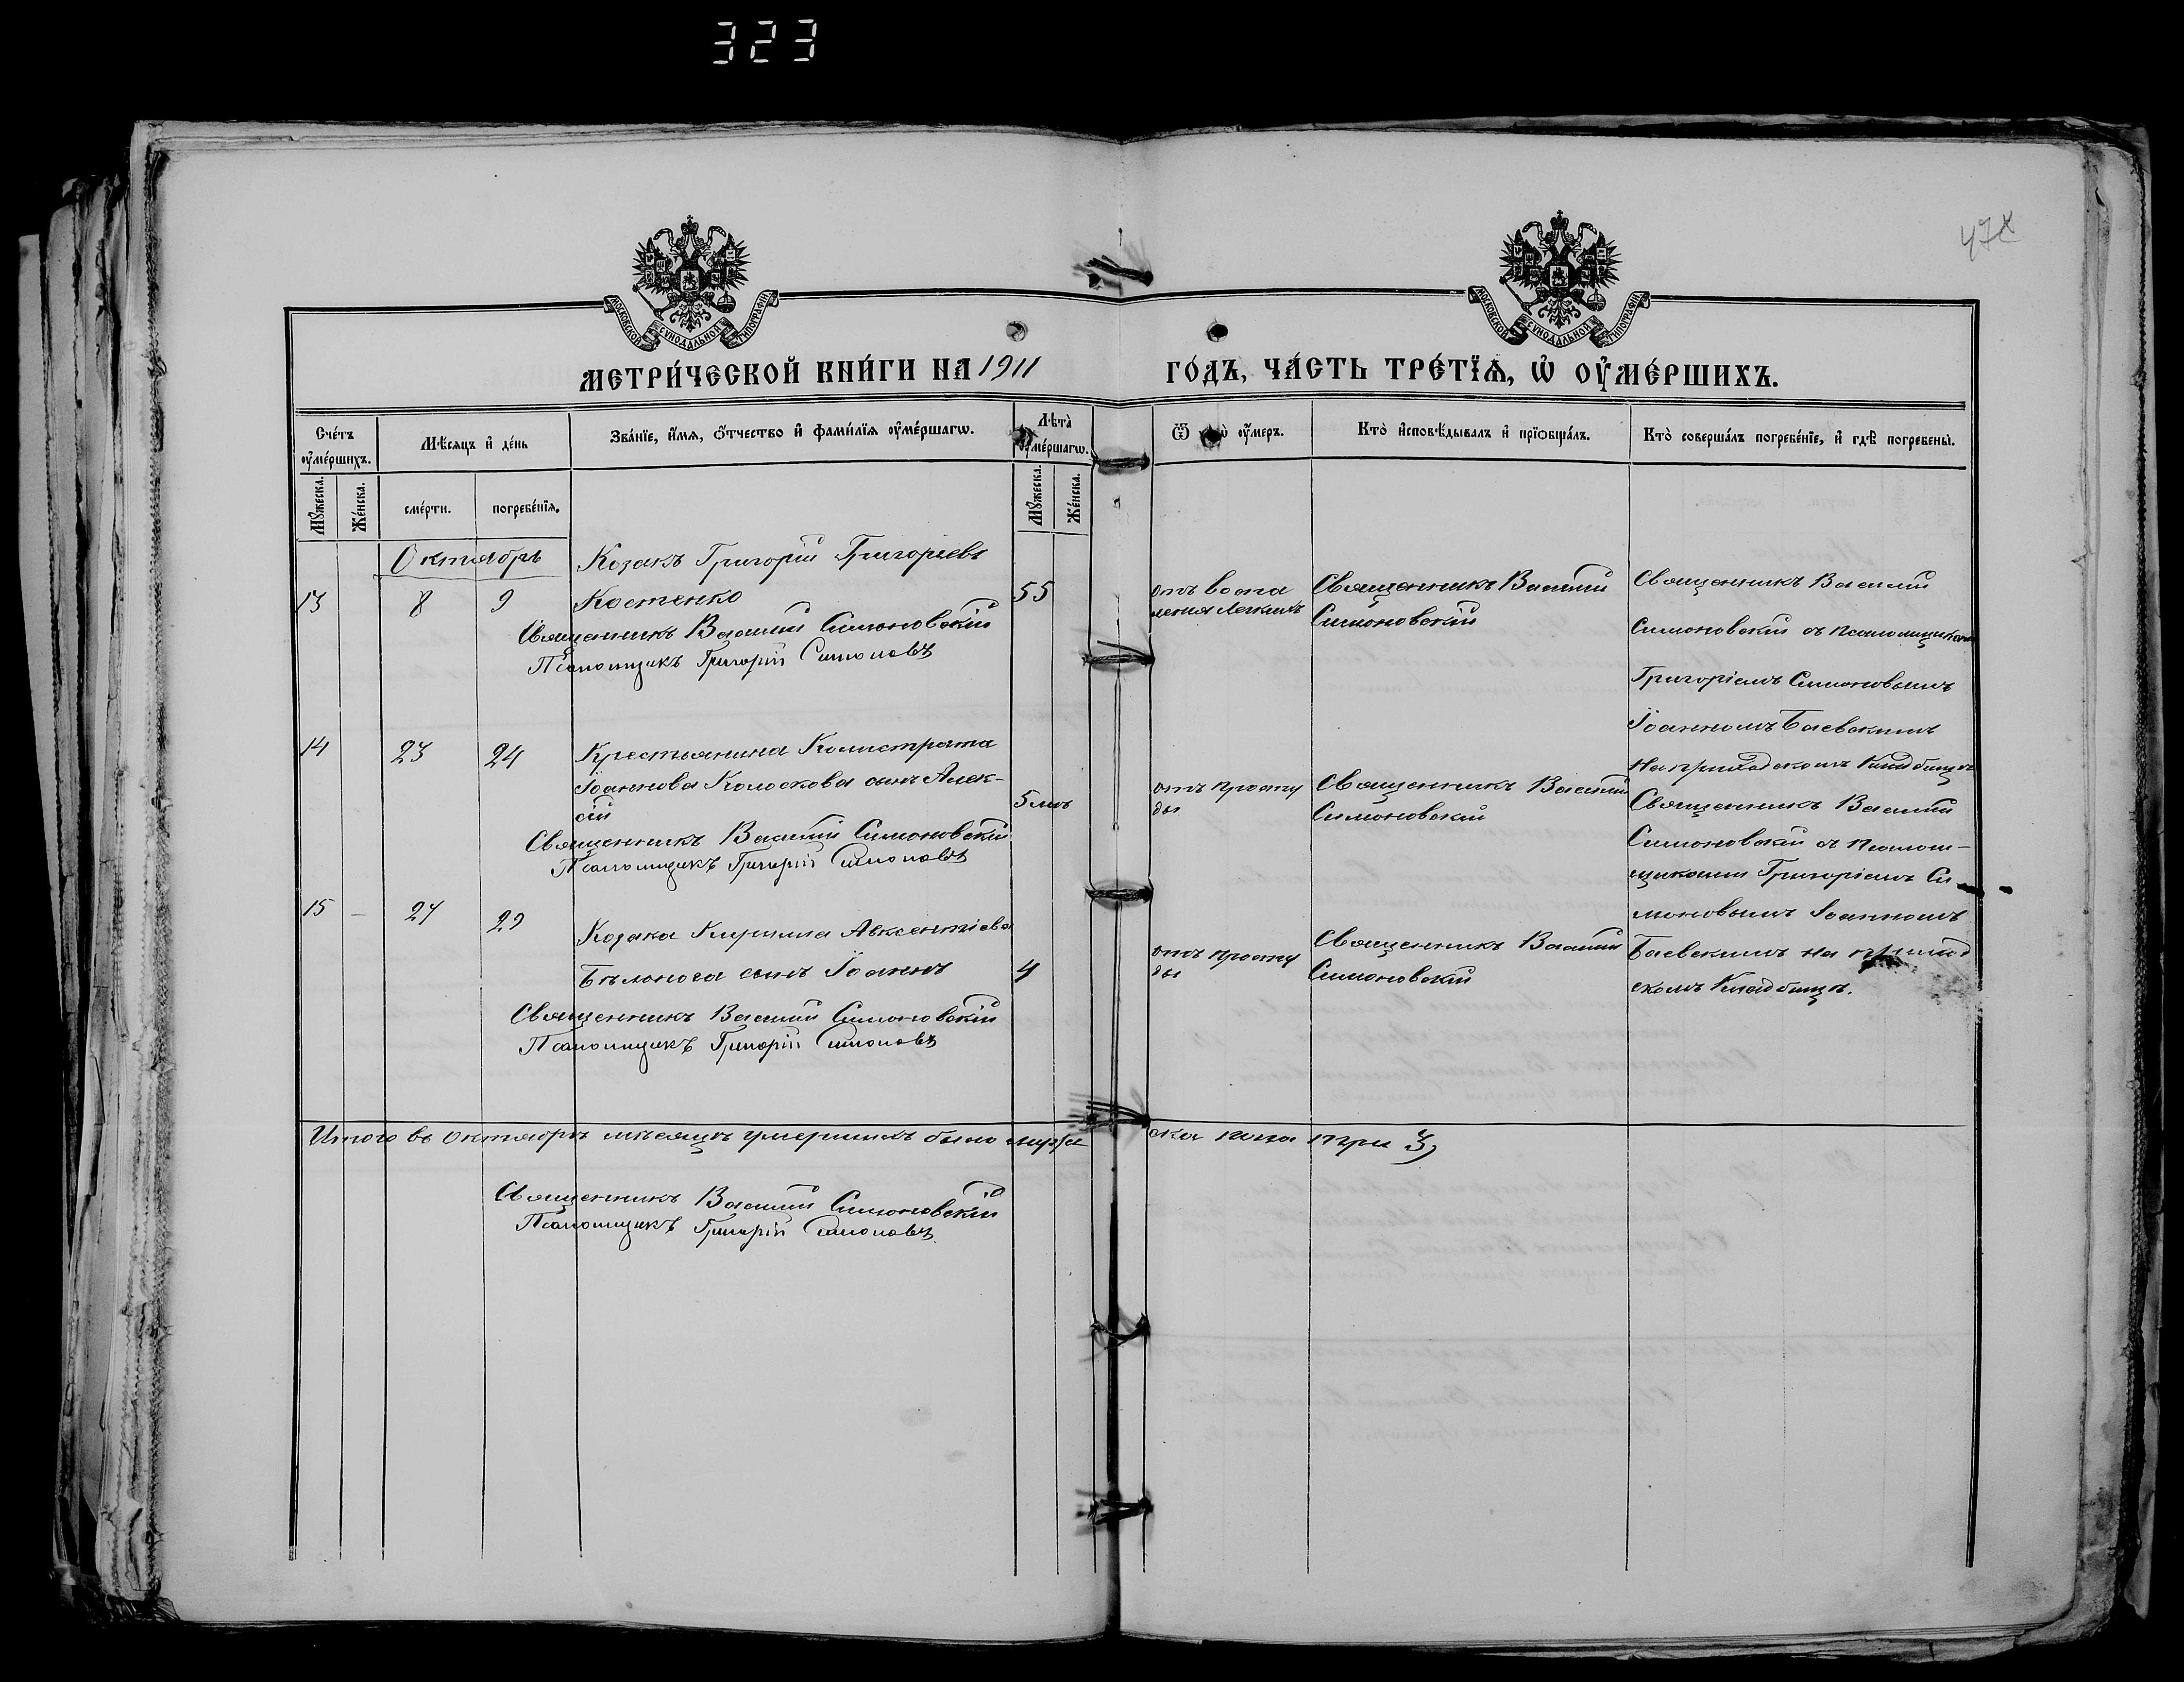 323
478
МОСКОВСКОЙ СѴНОДАЛЬНОЙ ТИПОГРАФІИ
МОСКОВСКОЙ СѴНОДАЛЬНОЙ ТИПОГРАФІИ
МЕТРИ́ЧЕСКОЙ КНИ́ГИ НА 1911 ГО́ДЪ, ЧА́СТЬ ТРЕ́ТЇѦ, Ѡ҆ ОУ҆МЕ́РШИХЪ.
Сче́тъ оу҆ме́ршихъ.
Мѣ́сяцъ и҆ де́нь
Зва́нїе, и҆́мя, ѻ҆́тчество и҆ фами́лїя оу҆ме́ршагѡ.
Лѣ́та̀ оу҆ме́ршагѡ.
Ѿ оу҆́меръ.
Кто̀ и҆сповѣ́дывалъ и҆ прїѻбща́лъ.
Кто̀ соверша́лъ погребе́нїе, и҆ гдѣ̀ погребены̀.
Мꙋ́жеска.
Же́нска.
сме́рти.
погребе́нїя.
Мꙋ́жеска.
Же́нска.
Октябрь
Козакъ Григорій Григоріевъ
13 8 9 Костенко 55
Священникъ Василій Симоновскій
Псаломщикъ Григорій Симоновъ
отъ воспа
ленія легкихъ
Священникъ Василій
Симоновскій
Священникъ Василій
Симоновскій съ псаломщиками
Григоріемъ Симоновымъ
Іоанномъ Баевскимъ
на приходскомъ кладбищѣ
14 23 24 Крестьянина Калистрата
Іоаннова Колоскова сынъ Алек-
сій
5 мѣ
Священникъ Василій Симоновскій
Псаломщикъ Григорій Симоновъ
отъ просту
ды
Священникъ Василій
Симоновскій
Священникъ Василій
Симоновскій съ псалом-
щиками Григоріемъ Си-
моновымъ Іоанномъ
Баевскимъ на приход
скомъ кладбищѣ.
15 — 27 29
Козака Кирилла Авксентіева
Бѣлонога сынъ Іоаннъ 4
Священникъ Василій Симоновскій
Псаломщикъ Григорій Симоновъ
отъ просту
ды
Священникъ Василій
Симоновскій
Итого въ октябрѣ мѣсяцѣ умершихъ было мужеска пола три 3)
Священникъ Василій Симоновскій
Псаломщикъ Григорій Симоновъ.